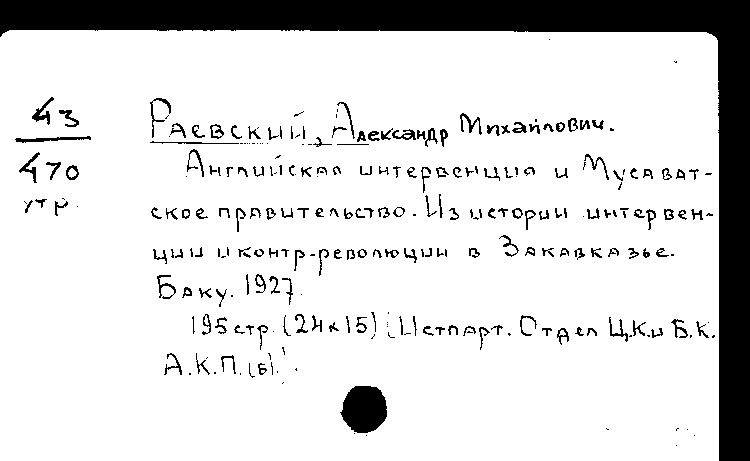 43
470
утр.
Раевский, Александр Михайлович.
Английская интервенция и Мусават-
ское правительство. Из истории интервен-
ции и контр-революции в Закавказье.
Баку. 1927.
195 стр. (24×15) [Истпарт. Отдел Ц.К. и Б.К.
А.К.П.(б).